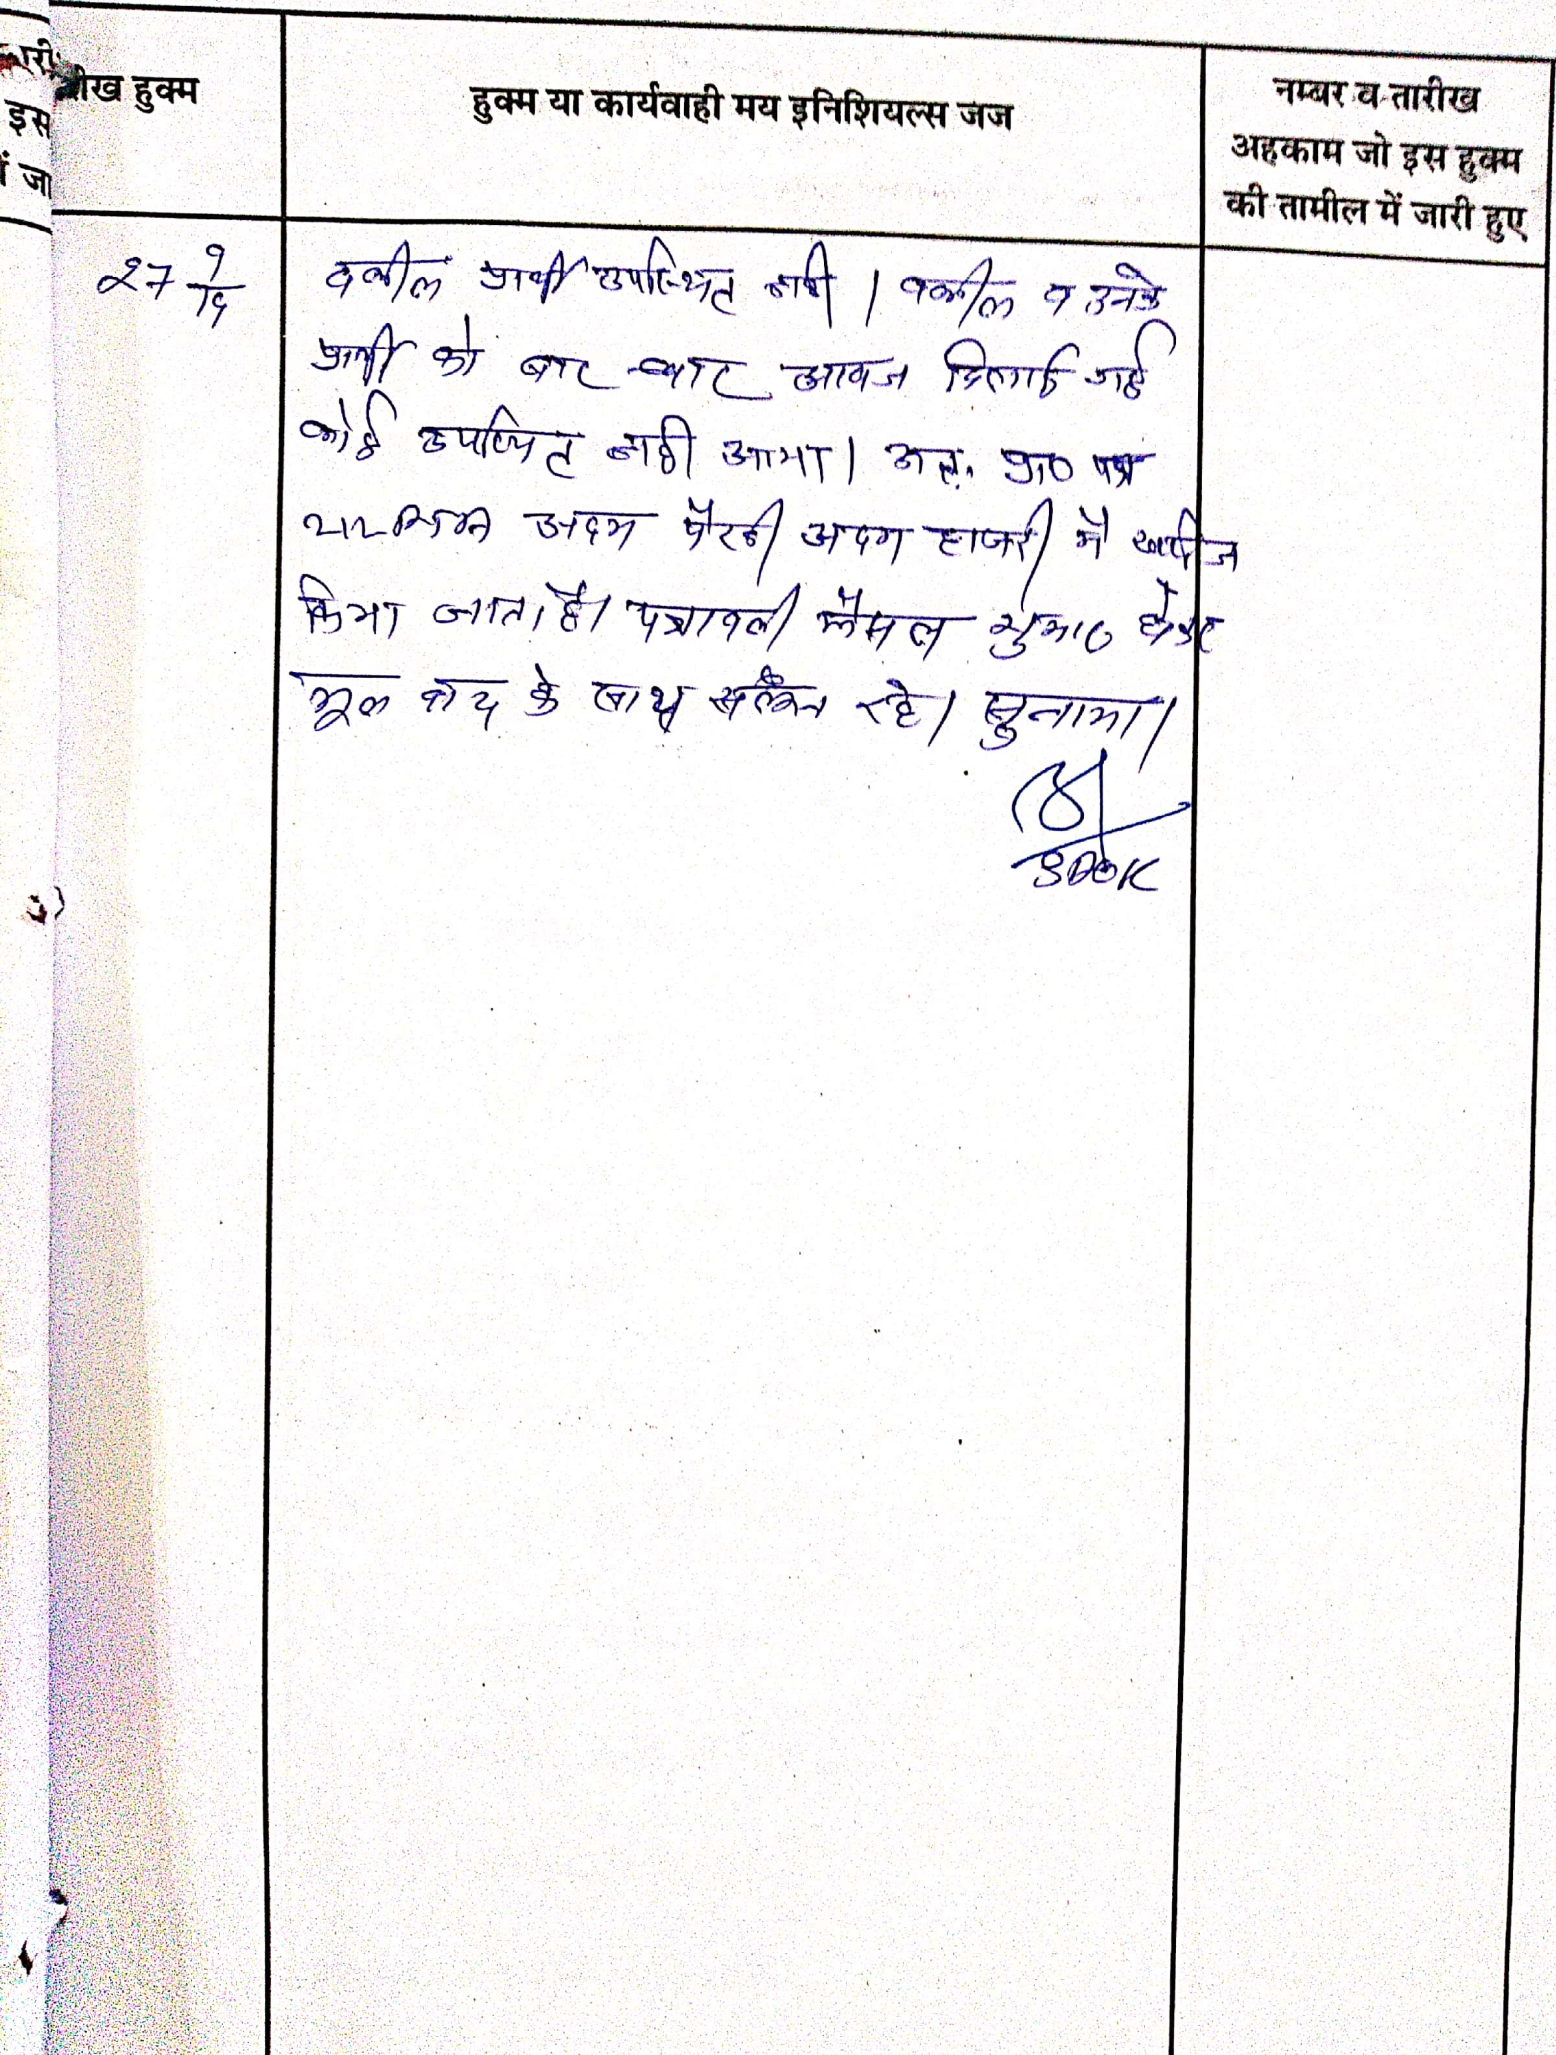 रीख हुक्म
हुक्म या कार्यवाही मय इनिशियल्स जज
नम्बर व तारीख
अहकाम जो इस हुक्म
की तामील में जारी हुए
इस
जा
27 9/16
वकील प्रार्थी उपस्थित नही । वकील व उनके
प्रार्थी को बार-बार आवाज दिलाई गई
कोई उपस्थित नही आया। अतः प्रा0 पत्र
अदम पैरवी अदम हाजरी मे खारिज
किया जाता है। पत्रावली फैसल शुमार होकर
मूल वाद के साथ संलग्न रहे। सुनाया।